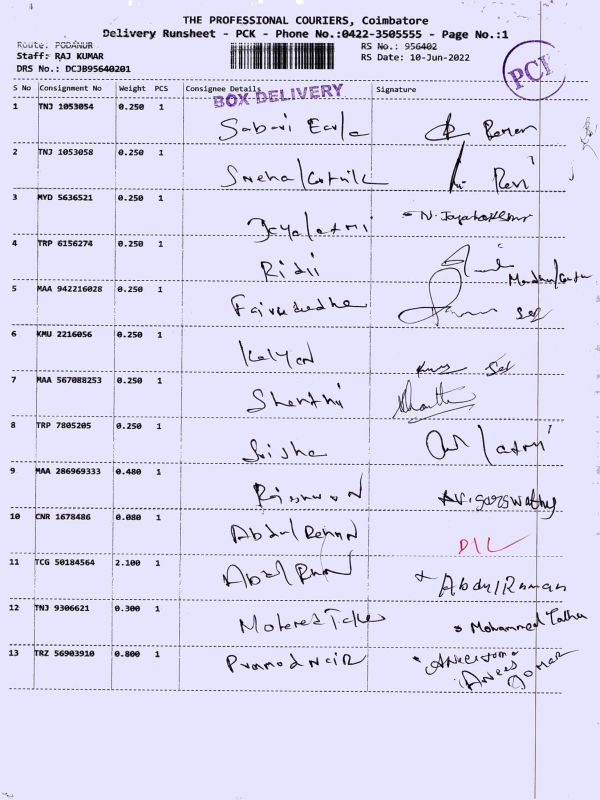 THE PROFESSIONAL COURIERS, Coimbatore
Delivery Runsheet - PCK - Phone No.:0422-3505555 - Page No.:1
Route: PODANUR
RS No.: 956402
Staff: RAJ KUMAR
RS Date: 10-Jun-2022
DRS No.: DCJB95640201
PCK
S No Consignment No Weight PCS Consignee Details Signature
BOX DELIVERY
1 TNJ 1053054 0.250 1 Raman
2 TNJ 1053058 0.250 1 Sneha Ravi
3 MYD 5636521 0.250 1 Jayalaxmi N. Jayakumar
4 TRP 6156274 0.250 1 Ridii
5 MAA 942216028 0.250 1 Self
6 KMU 2216056 0.250 1 Kalyan Self
7 MAA 567088253 0.250 1 Shanthi
8 TRP 7805205 0.250 1 Laxmi
9 MAA 286969333 0.480 1
10 CNR 1678486 0.080 1 Abdul Rehman D/L
11 TCG 50184564 2.100 1 Abdul Abdul Raman
12 TNJ 9306621 0.300 1 Mohammed Talha
13 TRZ 56903910 0.800 1 Pramod Nair